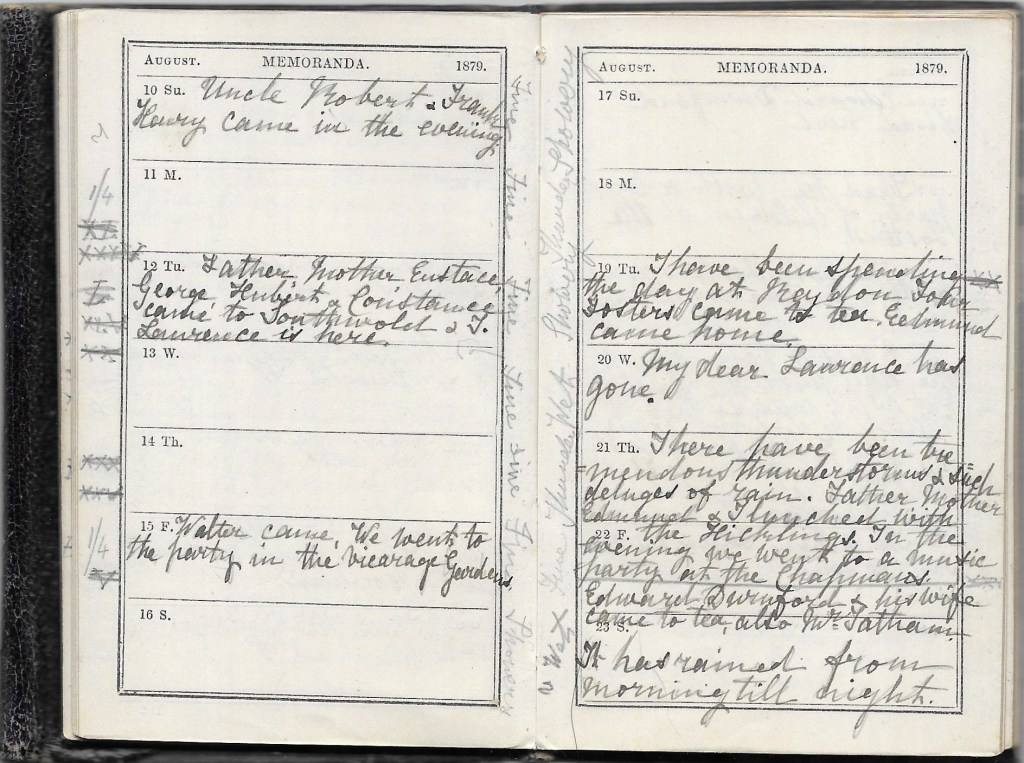 AUGUST. MEMORANDA. 1879.
10 Su. Uncle Robert & Frank
Henry came in the evening
11 M.
1/4
12 Tu. Father, Mother Eustace
George Hubert & Constance
came to Southwold & T.
Lawrence is here.
13 W.
14 Th.
15 F. Walter came. We went to
the party in the Vicarage Gardens
1/4
16 S.
Fine Fine Fine Fine Fine Fine Showery
AUGUST. MEMORANDA. 1879.
17 Su.
18 M.
19 Tu. I have been spending
the day at Reydon. John
Fosters came to tea. Edmund
came home.
20 W. My dear Lawrence has
gone.
21 Th. There have been tre
=mendous thunderstorms & such
deluges of rain. Father Mother
Edmund & I lunched with
22 F. the Hicklings. In the
evening we went to a music
party at the Chapmans.
Edward Durnford & his wife
came to tea, also Mr. Tatham.
23 S.
It has rained from
morning till night.
Wet Fine Thunder Wet Showery Thunder Showery